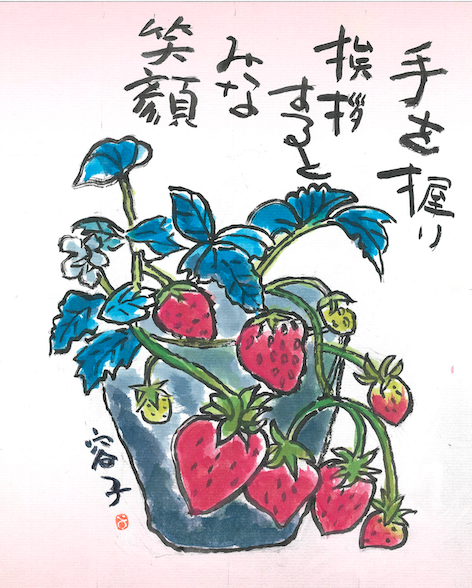 手を握り
挨拶
すると
みな
笑顔
容子